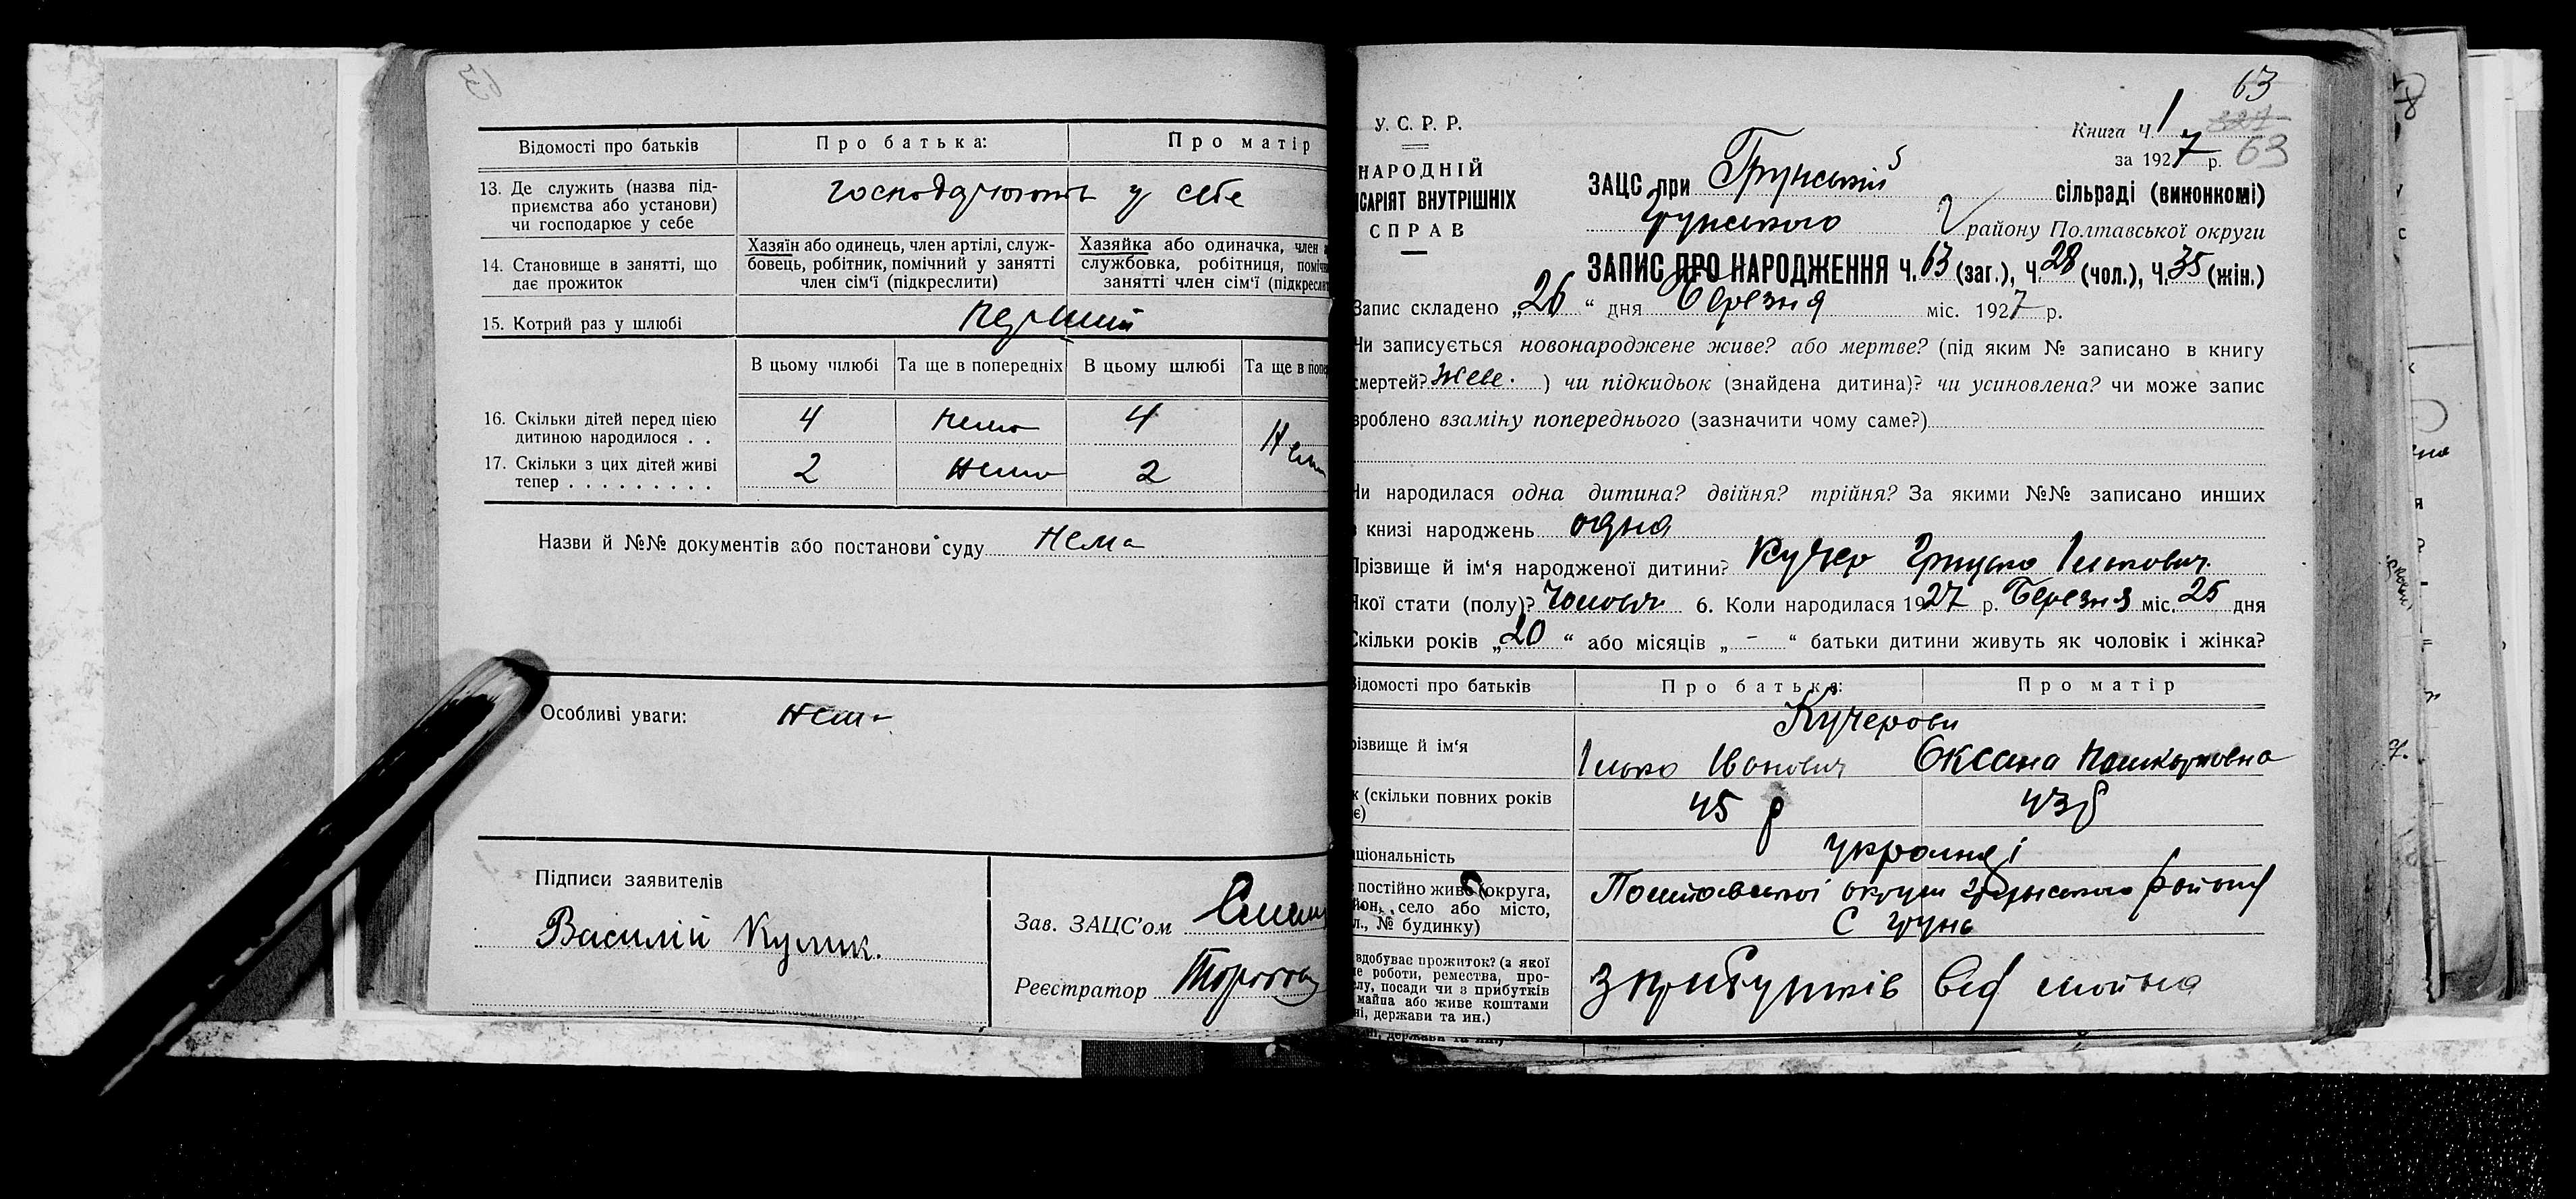 63
Відомості про батьків
Про батька:
Про матір
13. Де служить (назва під-
приємства або установи)
чи господарює у себе
господарюють у себе
14. Становище в занятті, що
дає прожиток
Хазяїн або одинець, член артілі, служ-
бовець, робітник, помічний у занятті
член сім'ї (підкреслити)
Хазяйка або одиначка, член
службовка, робітниця,
занятті член сім'ї
15. Котрий раз у шлюбі
перший
В цьому шлюбі
Та ще в попередніх
В цьому шлюбі
Та ще в
16. Скільки дітей перед цією
дитиною народилося . .
4
нема
4
Нема
17. Скільки з цих дітей живі
тепер . . . . . . . . .
2
нема
2
Назви й №№ документів або постанови суду нема
Особливі уваги: нема
Підписи заявителів
Василій Кулик.
Зав. ЗАЦС'ом
Реєстратор
63
У. С. Р. Р.
НАРОДНІЙ
ВНУТРІШНІХ
СПРАВ
Книга Ч. 1
за 1927 р. 63
ЗАЦС при Грунській сільраді (виконкомі)
Грунського району Полтавської округи
ЗАПИС ПРО НАРОДЖЕННЯ Ч. 63 (заг.), Ч. 28 (чол.), Ч. 35 (жін.)
Запис складено „26“ дня Березня міс. 1927 р.
Чи записується новонароджене живе? або мертве? (під яким № записано в книгу
смертей? Живе. ) чи підкидьок (знайдена дитина)? чи усиновлена? чи може запис
зроблено взаміну попереднього (зазначити чому саме?)
Чи народилася одна дитина? двійня? трійня? За якими №№ записано инших
в книзі народжень одна
Прізвище й ім'я народженої дитини? Кучер Грицько Ількович.
Якої стати (полу)? Чоловіч 6. Коли народилася 1927 р. Березня міс. 25 дня
Скільки років „20“ або місяців „-“ батьки дитини живуть як чоловік і жінка?
Відомості про батьків
Про батька:
Про матір
Прізвище й ім'я
Кучерови
Ілько Іванович
Оксана
(скільки повних років
45 р
43 р
національність
українці
постійно живе (округа,
село або місто,
№ будинку)
Полтавської округи Грунського району
С Грунь
здобуває прожиток? (з якої
роботи, ремества, про-
посади чи з прибутків
майна або живе коштами
держави та ин.)
з прибутків